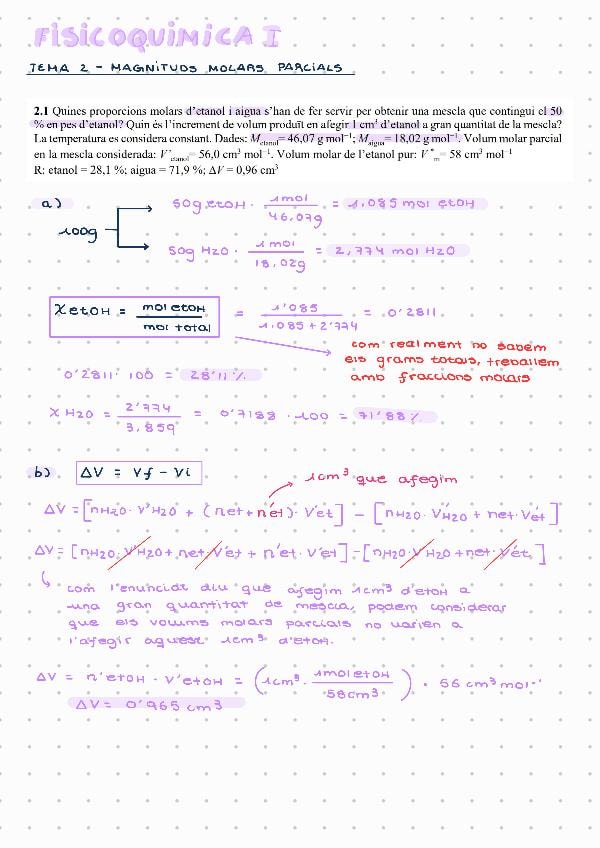 FISICOQUIMICA I
TEMA 2 - MAGNITUDS MOLARS PARCIALS
2.1 Quines proporcions molars d'etanol i aigua s'han de fer servir per obtenir una mescla que contingui el 50
% en pes d'etanol? Quin és l'increment de volum produït en afegir 1 cm³ d'etanol a gran quantitat de la mescla?
La temperatura es considera constant. Dades: Metanol= 46,07 g mol⁻¹; Maigua= 18,02 g mol⁻¹. Volum molar parcial
en la mescla considerada: V'etanol= 56,0 cm³ mol⁻¹. Volum molar de l'etanol pur: V*m= 58 cm³ mol⁻¹
R: etanol = 28,1 %; aigua = 71,9 %; ΔV = 0,96 cm³
a)
100g
50g etOH · 1mol / 46,07g = 1,085 mol etOH
50g H2O · 1mol / 18,02g = 2,774 mol H2O
XetOH = mol etOH / mol total = 1'085 / 1,085+2'774 = 0'2811
com realment no sabem
els grams totals, treballem
amb fraccions molars
0'2811 · 100 = 28'11 %
X H2O = 2'774 / 3,859 = 0'7188 · 100 = 71'88 %
b) ΔV = Vf - Vi
1cm³ que afegim
ΔV = [nH2O · V'H2O + (net + n'et) · V'et] - [nH2O · V'H2O + net · V'et]
ΔV = [nH2O · V'H2O + net · V'et + n'et · V'et] - [nH2O · V'H2O + net · V'et]
com l'enunciat diu que afegim 1cm³ d'etOH a
una gran quantitat de mescla, podem considerar
que els volums molars parcials no varien a
l'afegir aquest 1cm³ d'etOH.
ΔV = n'etOH · V'etOH = (1cm³ · 1mol etOH / 58cm³) · 56 cm³ mol⁻¹
ΔV = 0'965 cm³